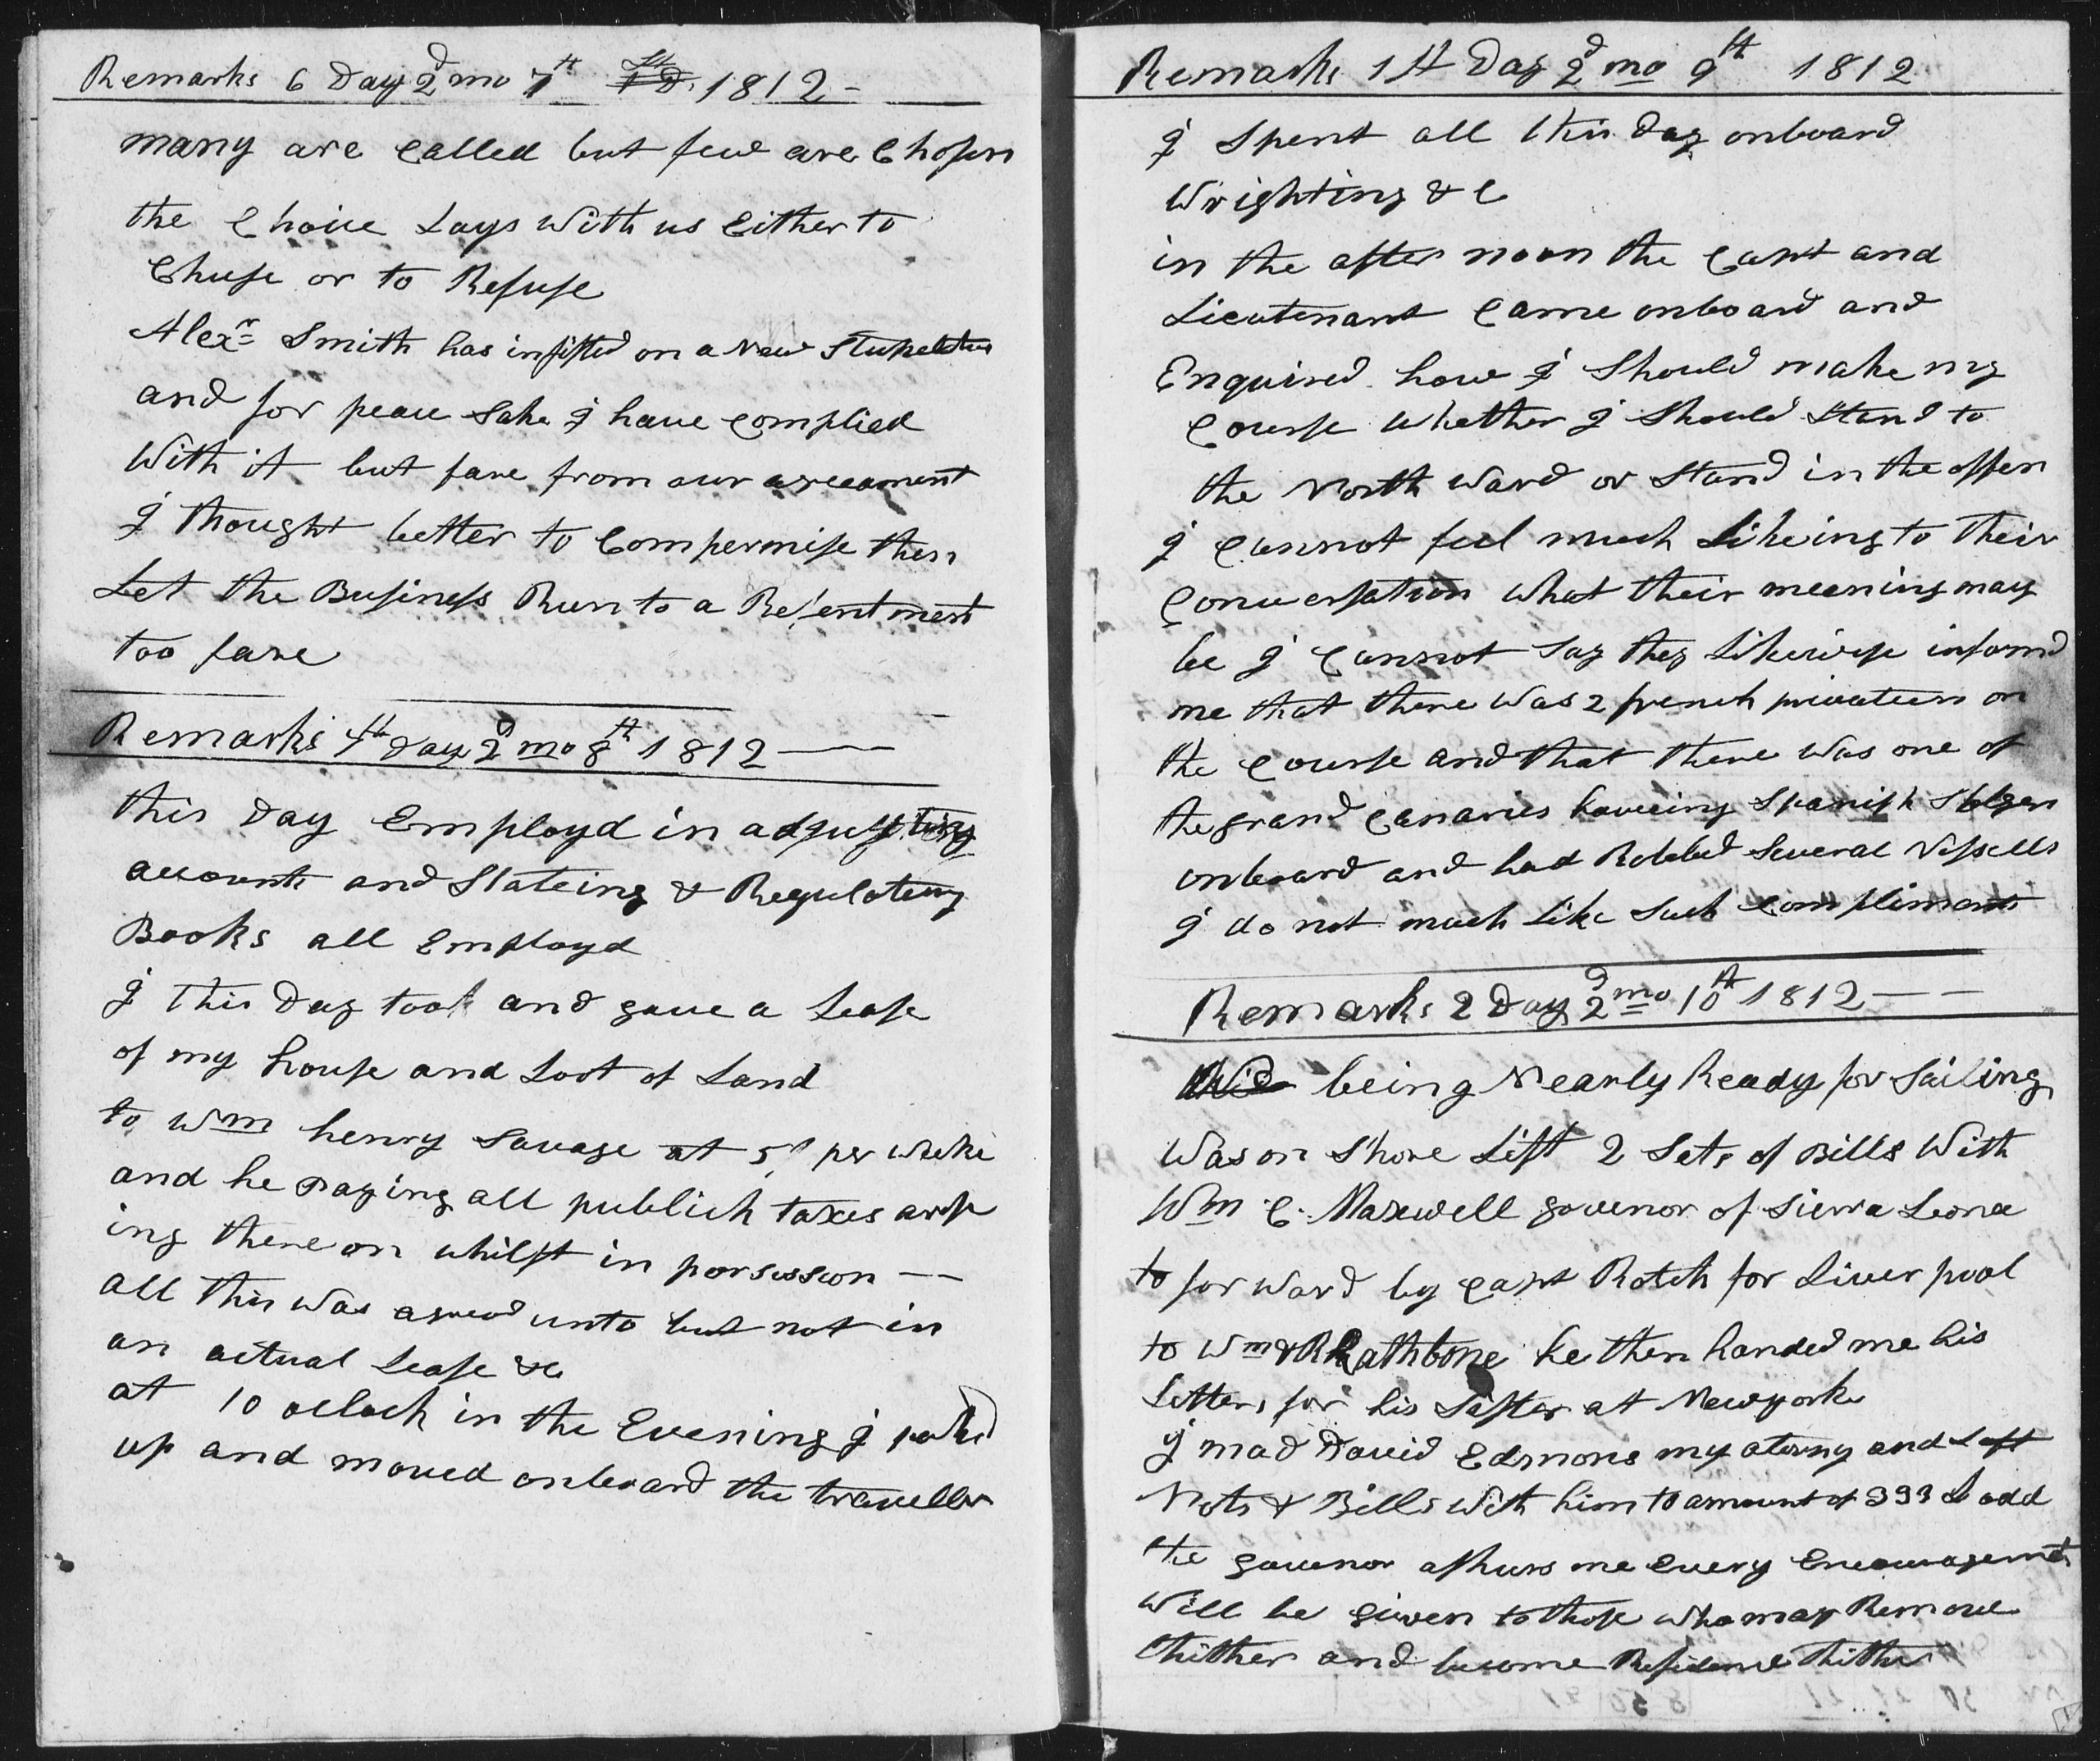 Remarks 6 Day 2d mo 7th 1812 -
many are Called but few are Chosen
the Choice Lays With us Either to
Chuse or to Refuse
Alexr Smith has insisted on a New
and for peace Sake I have Complied
With it but fare from our agreeament
I thought better to Compermise then
Let the Business Run to a Resentment
too fare
Remarks 7th day 2d mo 8th 1812 —
this Day Employd in adjusting
accounts and Stateing & Regulateing
Books all Employd
I this Day took and gave a Lease
of my house and Loot of Land
to Wm henry Savage at 5/ per Weeke
and he paying all publick taxes arise
ing there on whilst in porsession —
all this Was agreed unto but not in
an actual Lease &c
at 10 oclock in the Evening I packd
up and moved onboard the traveller
Remarks 1st Day 2d mo 9th 1812
I Spent all this day onboard
Wrighting & C
in the after noon the Capt and
Lieutenant Came onboard and
Enquired how I Should make my
Course Whether I Should Stand to
the North Ward or Stand in the offen
I Cannot feel much Likeing to their
Conversation What their meening may
be I Cannot Say they Likewise informd
me that there Was 2 french privateers on
the Course and that there Was one of
the grand Canaries haveing Spanish
onboard and had Robbed Several Vessells
I do not much Like Such Compliments
Remarks 2 Day 2d mo 10th 1812 — —
being Nearly Ready for Sailing
Was on Shore Left 2 Sets of Bills With
Wm C. Maxwell govenor of Sierra Leona
to for Ward by Capt Rotch for Liver pool
to Wm & R Rathbone he then handed me his
Letters for his Sister at Newyork
I mad David Edmons my atorny and Left
Nots & Bills With him to amount of 393 L odd
the govenor assurs me Every Encouragement
Will be given to those Who may Remove
thither and become Residence thither